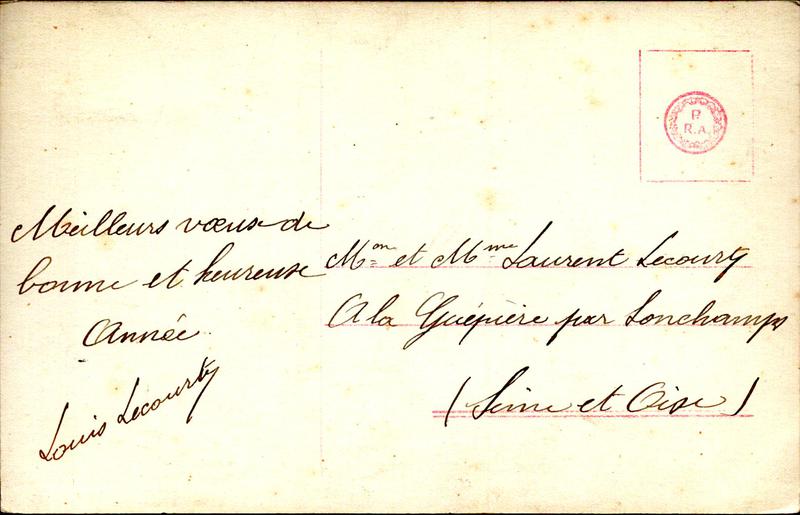 Meilleurs vœux de
bonne et heureuse
Année
Louis Lecourty
Mon et Mme Laurent Lecourty
A la Guépière par Lonchamps
(Seine et Oise)
P
R.A.